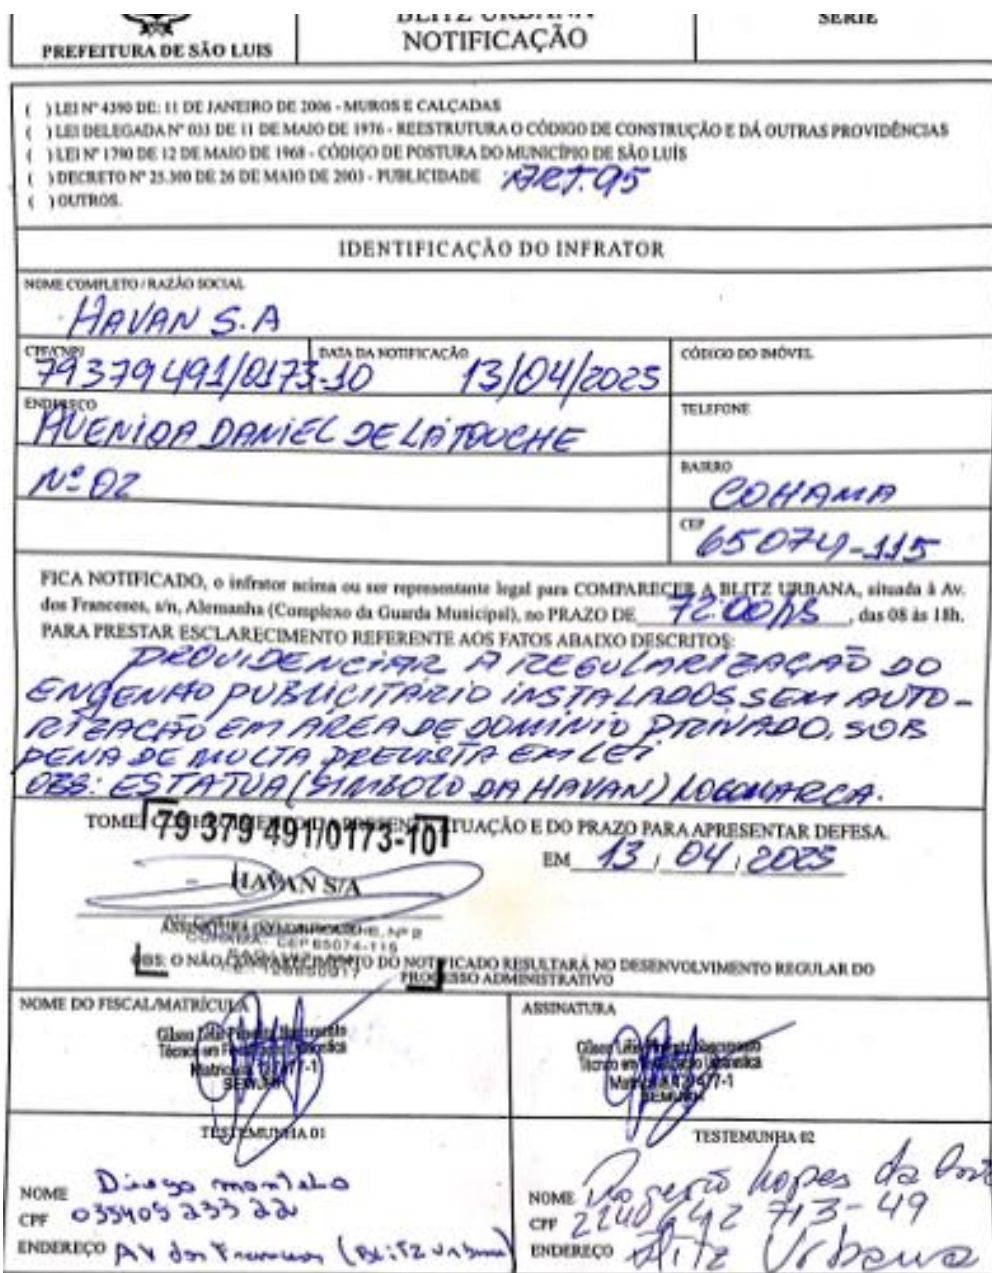 PREFEITURA DE SÃO LUIS
BLITZ URBANA
NOTIFICAÇÃO
SÉRIE
( ) LEI Nº 4390 DE: 11 DE JANEIRO DE 2006 - MUROS E CALÇADAS
( ) LEI DELEGADA Nº 033 DE 11 DE MAIO DE 1976 - REESTRUTURA O CÓDIGO DE CONSTRUÇÃO E DÁ OUTRAS PROVIDÊNCIAS
( ) LEI Nº 1790 DE 12 DE MAIO DE 1968 - CÓDIGO DE POSTURA DO MUNICÍPIO DE SÃO LUÍS
( ) DECRETO Nº 25.300 DE 26 DE MAIO DE 2003 - PUBLICIDADE ART. 95
( ) OUTROS.
IDENTIFICAÇÃO DO INFRATOR
NOME COMPLETO / RAZÃO SOCIAL
HAVAN S.A
CPF/CNPJ
DATA DA NOTIFICAÇÃO
CÓDIGO DO IMÓVEL
79379491/0173-10 13/04/2025
ENDEREÇO
TELEFONE
AVENIDA DANIEL DE LA TOUCHE
Nº 02
BAIRRO
COHAMA
CEP
65074-115
FICA NOTIFICADO, o infrator acima ou ser representante legal para COMPARECER A BLITZ URBANA, situada à Av.
dos Franceses, s/n, Alemanha (Complexo da Guarda Municipal), no PRAZO DE 72:00hs, das 08 às 18h.
PARA PRESTAR ESCLARECIMENTO REFERENTE AOS FATOS ABAIXO DESCRITOS:
PROVIDENCIAR A REGULARIZAÇÃO DO
ENGENHO PUBLICITÁRIO INSTALADOS SEM AUTO-
RIZAÇÃO EM AREA DE DOMÍNIO PRIVADO, SOB
PENA DE MULTA PREVISTA EM LEI
OBS: ESTATUA (SIMBOLO DA HAVAN) LOGOMARCA.
TOMEI DA PRESENTE ATUAÇÃO E DO PRAZO PARA APRESENTAR DEFESA.
79 379 491/0173-10
EM 13 / 04 / 2025
HAVAN S/A
ASSINATURA
Nº 2
CEP 65074-115
OBS: O NÃO COMPARECIMENTO DO NOTIFICADO RESULTARÁ NO DESENVOLVIMENTO REGULAR DO
PROCESSO ADMINISTRATIVO
NOME DO FISCAL/MATRÍCULA
ASSINATURA
SEMURH
SEMURH
TESTEMUNHA 01
TESTEMUNHA 02
NOME Diego
CPF 033405 233 22
ENDEREÇO AV dos Franceses (Blitz Urbana)
NOME Rogerio Lopes da
CPF 2240642 713-49
ENDEREÇO Blitz Urbana